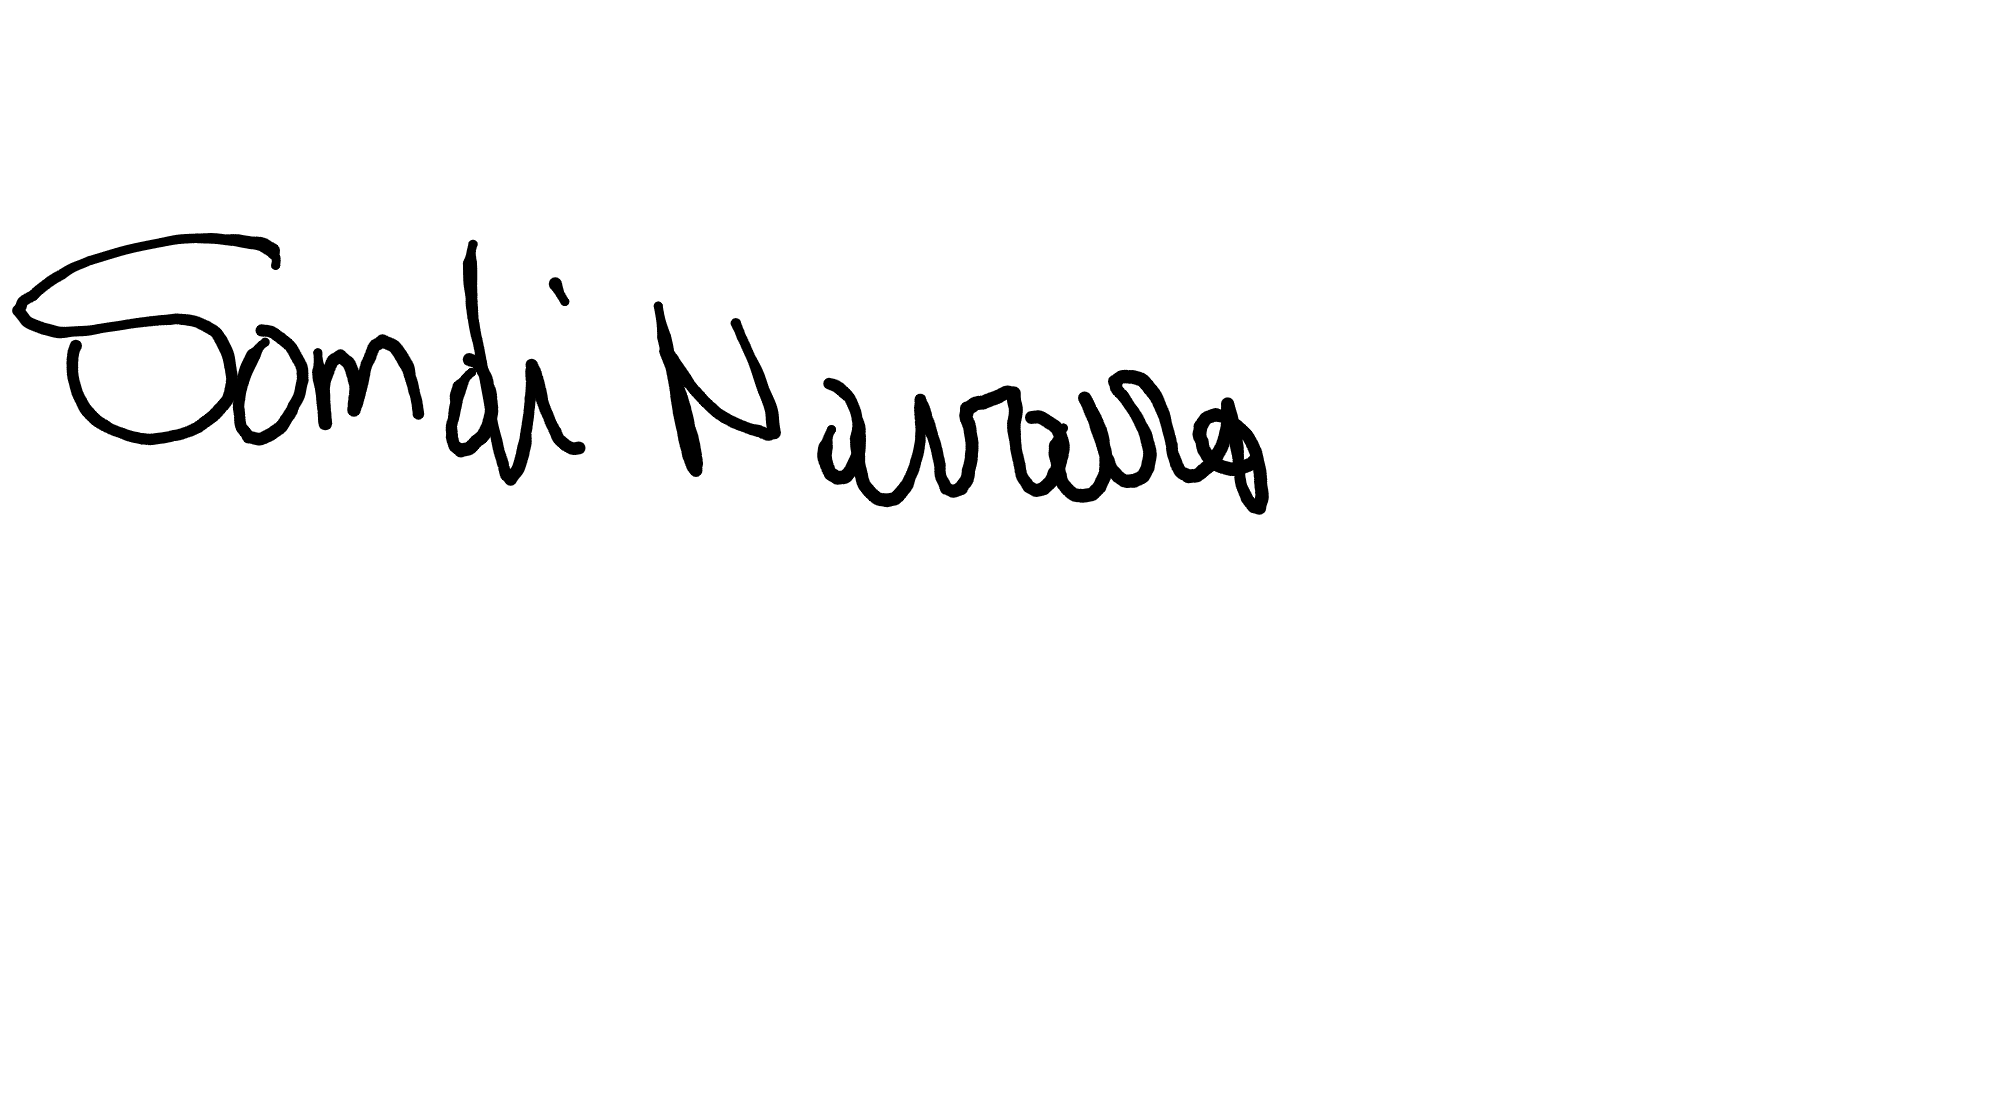 Somdi Navarra